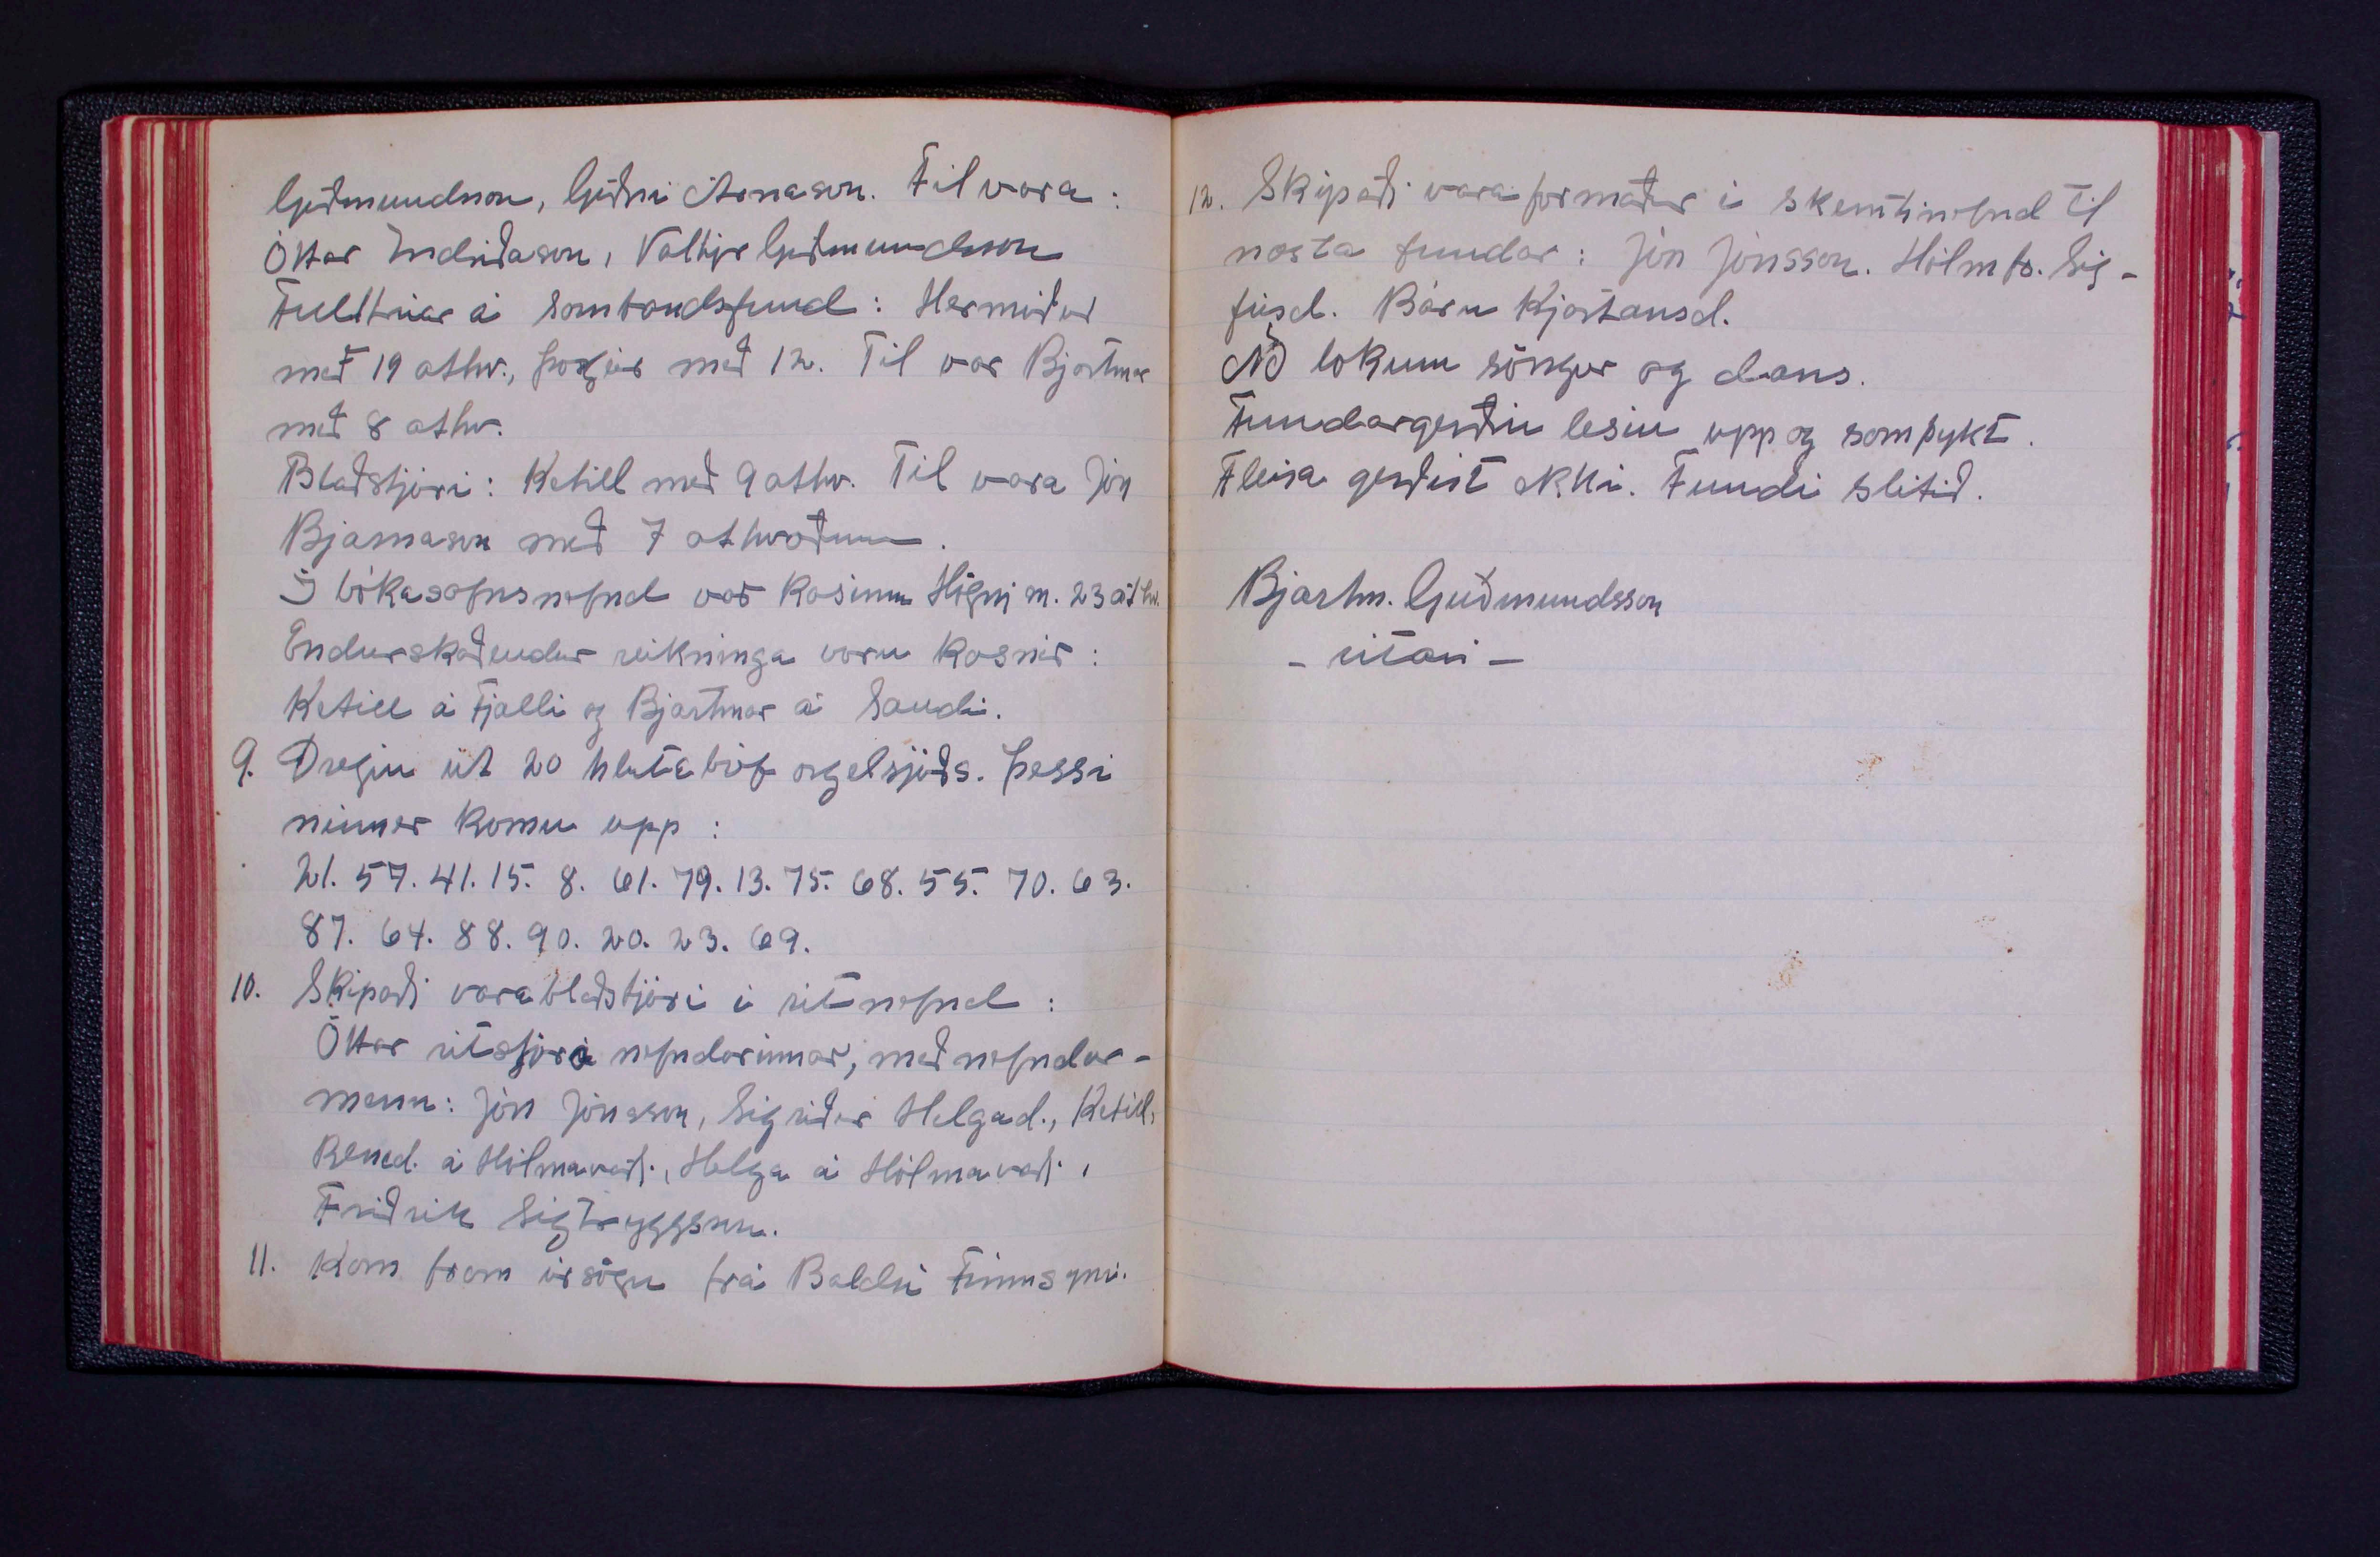 Guðmundsson, Guðni Árnason. Til vara:
Óttar Indriðason, Valtýr Guðmundsson
Fulltrúar á sambandsfund: Hermóður
með 19 atkv., Þorgeir með 12. Til var Bjartmar
með 8 atkv.
Blaðstjóri: Ketill með 9 atkv. Til vara Jón
Bjarnason með 7 atkvæðum.
Í bókasafnsnefnd var kosinn Högni m. 23 atkv.
Endurskoðendur reikninga voru kosnir:
Ketill á Fjalli og Bjartmar á Sandi.
9. Dregin út 20 hlutabréf orgelsjóðs. Þessi
númer komu upp:
21. 57. 41. 15. 8. 61. 79. 13. 75. 68. 55. 70. 63.
87. 64. 88. 90. 20. 23. 69.
10. Skipaði varablaðstjóri í ritnefnd:
Óttar ritstjóra nefndarinnar, með nefndar-
menn: Jón Jónsson, Sigríður Helgad., Ketill,
Bened. á Hólmavaði, Helga á Hólmavaði,
Friðrik Sigtryggsson.
11. Kom fram úrsögn frá Baldri Finnssyni.
12. Skipaði varaformaður í skemtinefnd til
næsta fundar: Jón Jónsson. Hólmfr. Sig-
fúsd. Báru Kjartansd.
Að lokum söngur og dans.
Fundargerðin lesin upp og samþykt.
Fleira gerðist ekki. Fundi slitið.
Bjartm. Guðmundsson
- ritari -